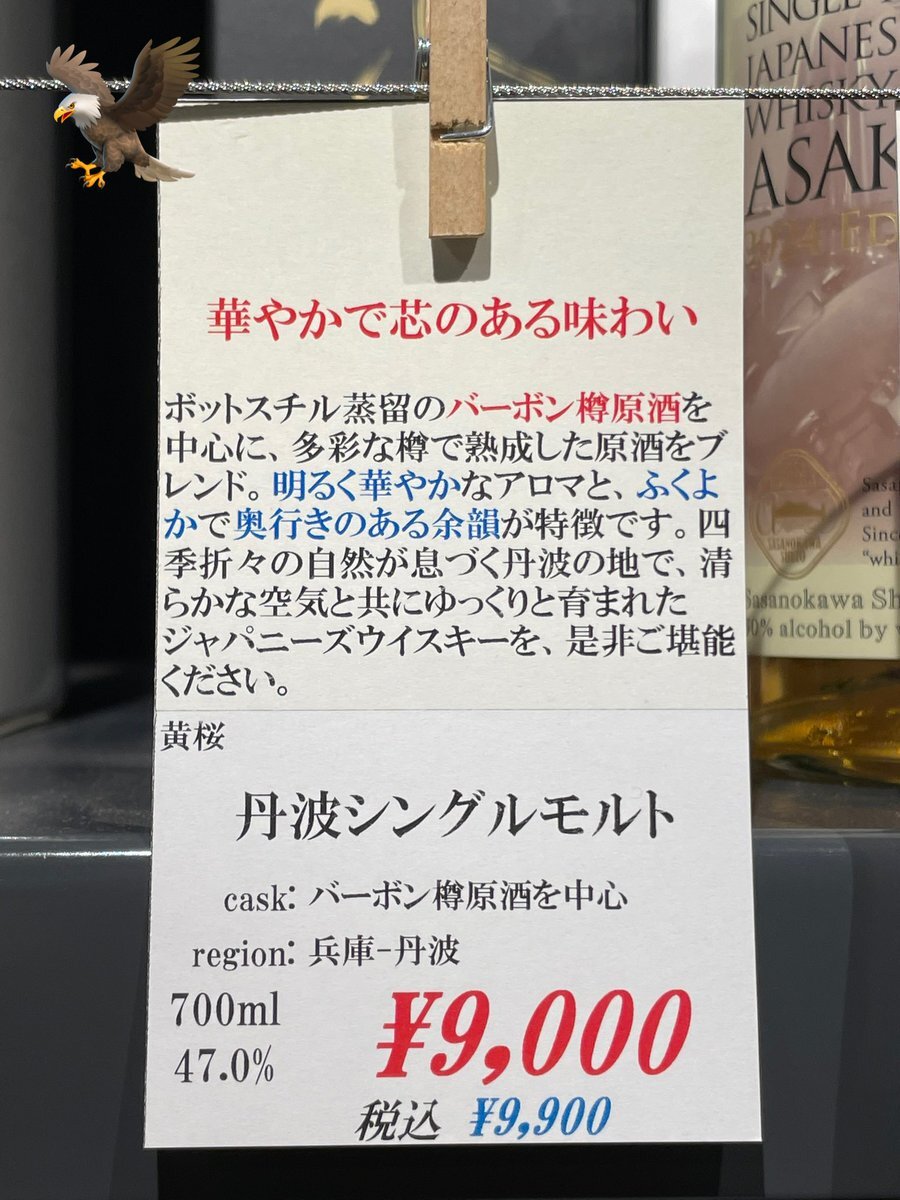 SINGLE
JAPANES
WHISKY
ASAK
2024 ED
華やかで芯のある味わい
ボットスチル蒸留のバーボン樽原酒を
中心に、多彩な樽で熟成した原酒をブ
レンド。明るく華やかなアロマと、ふくよ
かで奥行きのある余韻が特徴です。四
季折々の自然が息づく丹波の地で、清
らかな空気と共にゆっくりと育まれた
ジャパニーズウイスキーを、是非ご堪能
ください。
黄桜
丹波シングルモルト
cask: バーボン樽原酒を中心
region: 兵庫-丹波
700ml
47.0%
¥9,000
税込 ¥9,900
Sasa
and
Sinc
"whi
SASANOKAWA
SHUZO
Sasanokawa Sh
0% alcohol by v